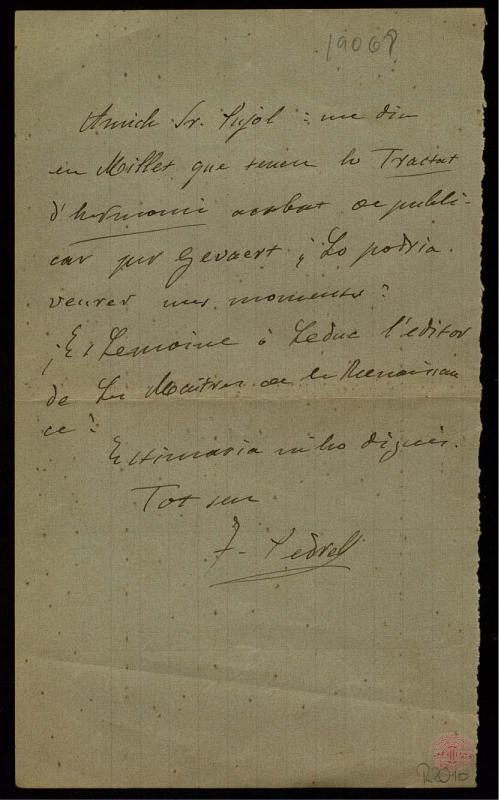 1906?
Amich Sr. Pujol: me diu
en Millet que teneu lo Tractat
d'harmoni acabat de publi-
car per Gevaert ¿Lo podria
veurer uns moments?
¿Es Lemoine ó Leduc l'editor
de Les Maitres de la Renaissan
ce?
Estimaria m ho digués.
Tot seu
F. Pedrell